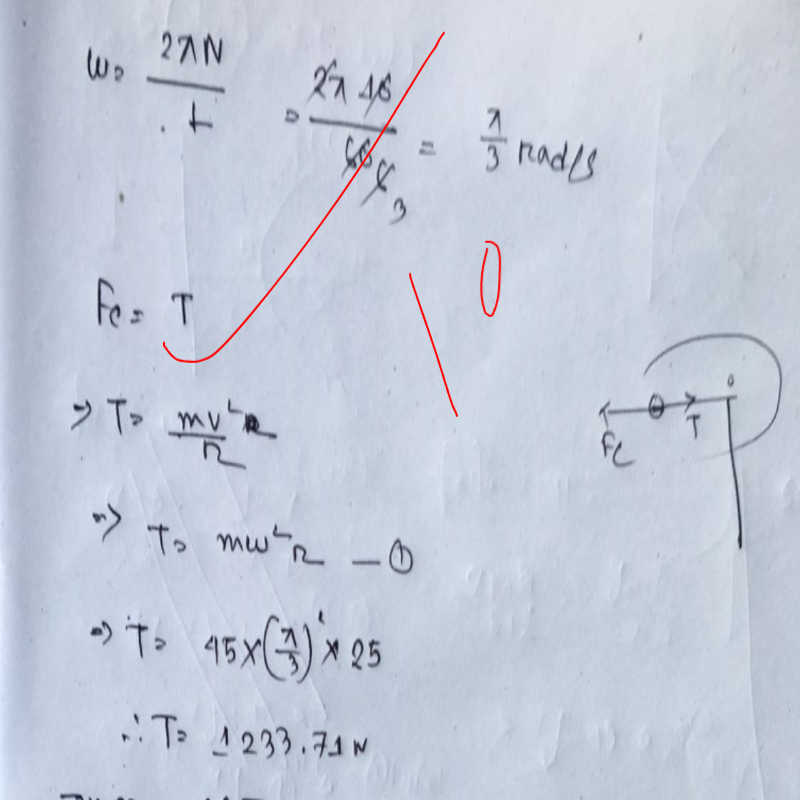 ω = 2πN / t = 2π 10 / 60 3 = π/3 rad/s
Fc = T
⇒ T = mv²/r
⇒ T = mω²r — ①
⇒ T = 45×(π/3)² × 25
∴ T = 1233.71 N
Fc T o
10